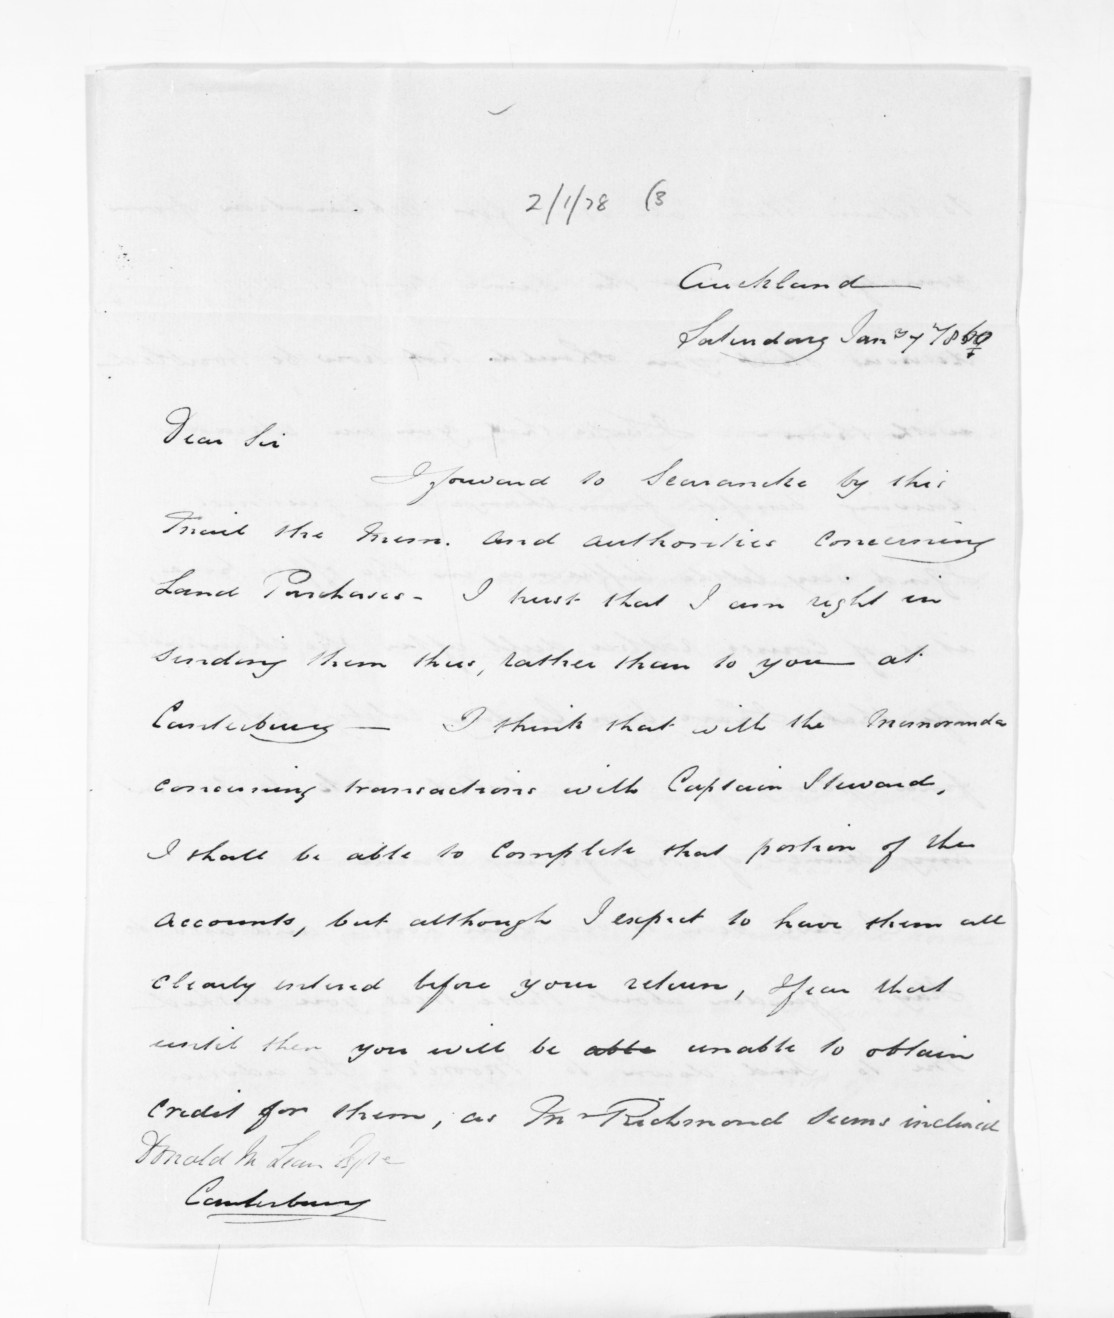 2/1/78 (3
Auckland
Saturday Jany 7 1860
Dear Sir
I forward to Searancke by this
Mail the Mem. and authorities concerning
Land Purchases - I trust that I am right in
sending them thus, rather than to you at
Canterbury - I think that with the Memoranda
concerning transactions with Captain Steward,
I shall be able to complete that portion of the
accounts, but although I expect to have them all
clearly entered before your return, I fear that
until then you will be able unable to obtain
credit for them, as Mr Richmond seems inclined
Donald McLean Esqre
Canterbury